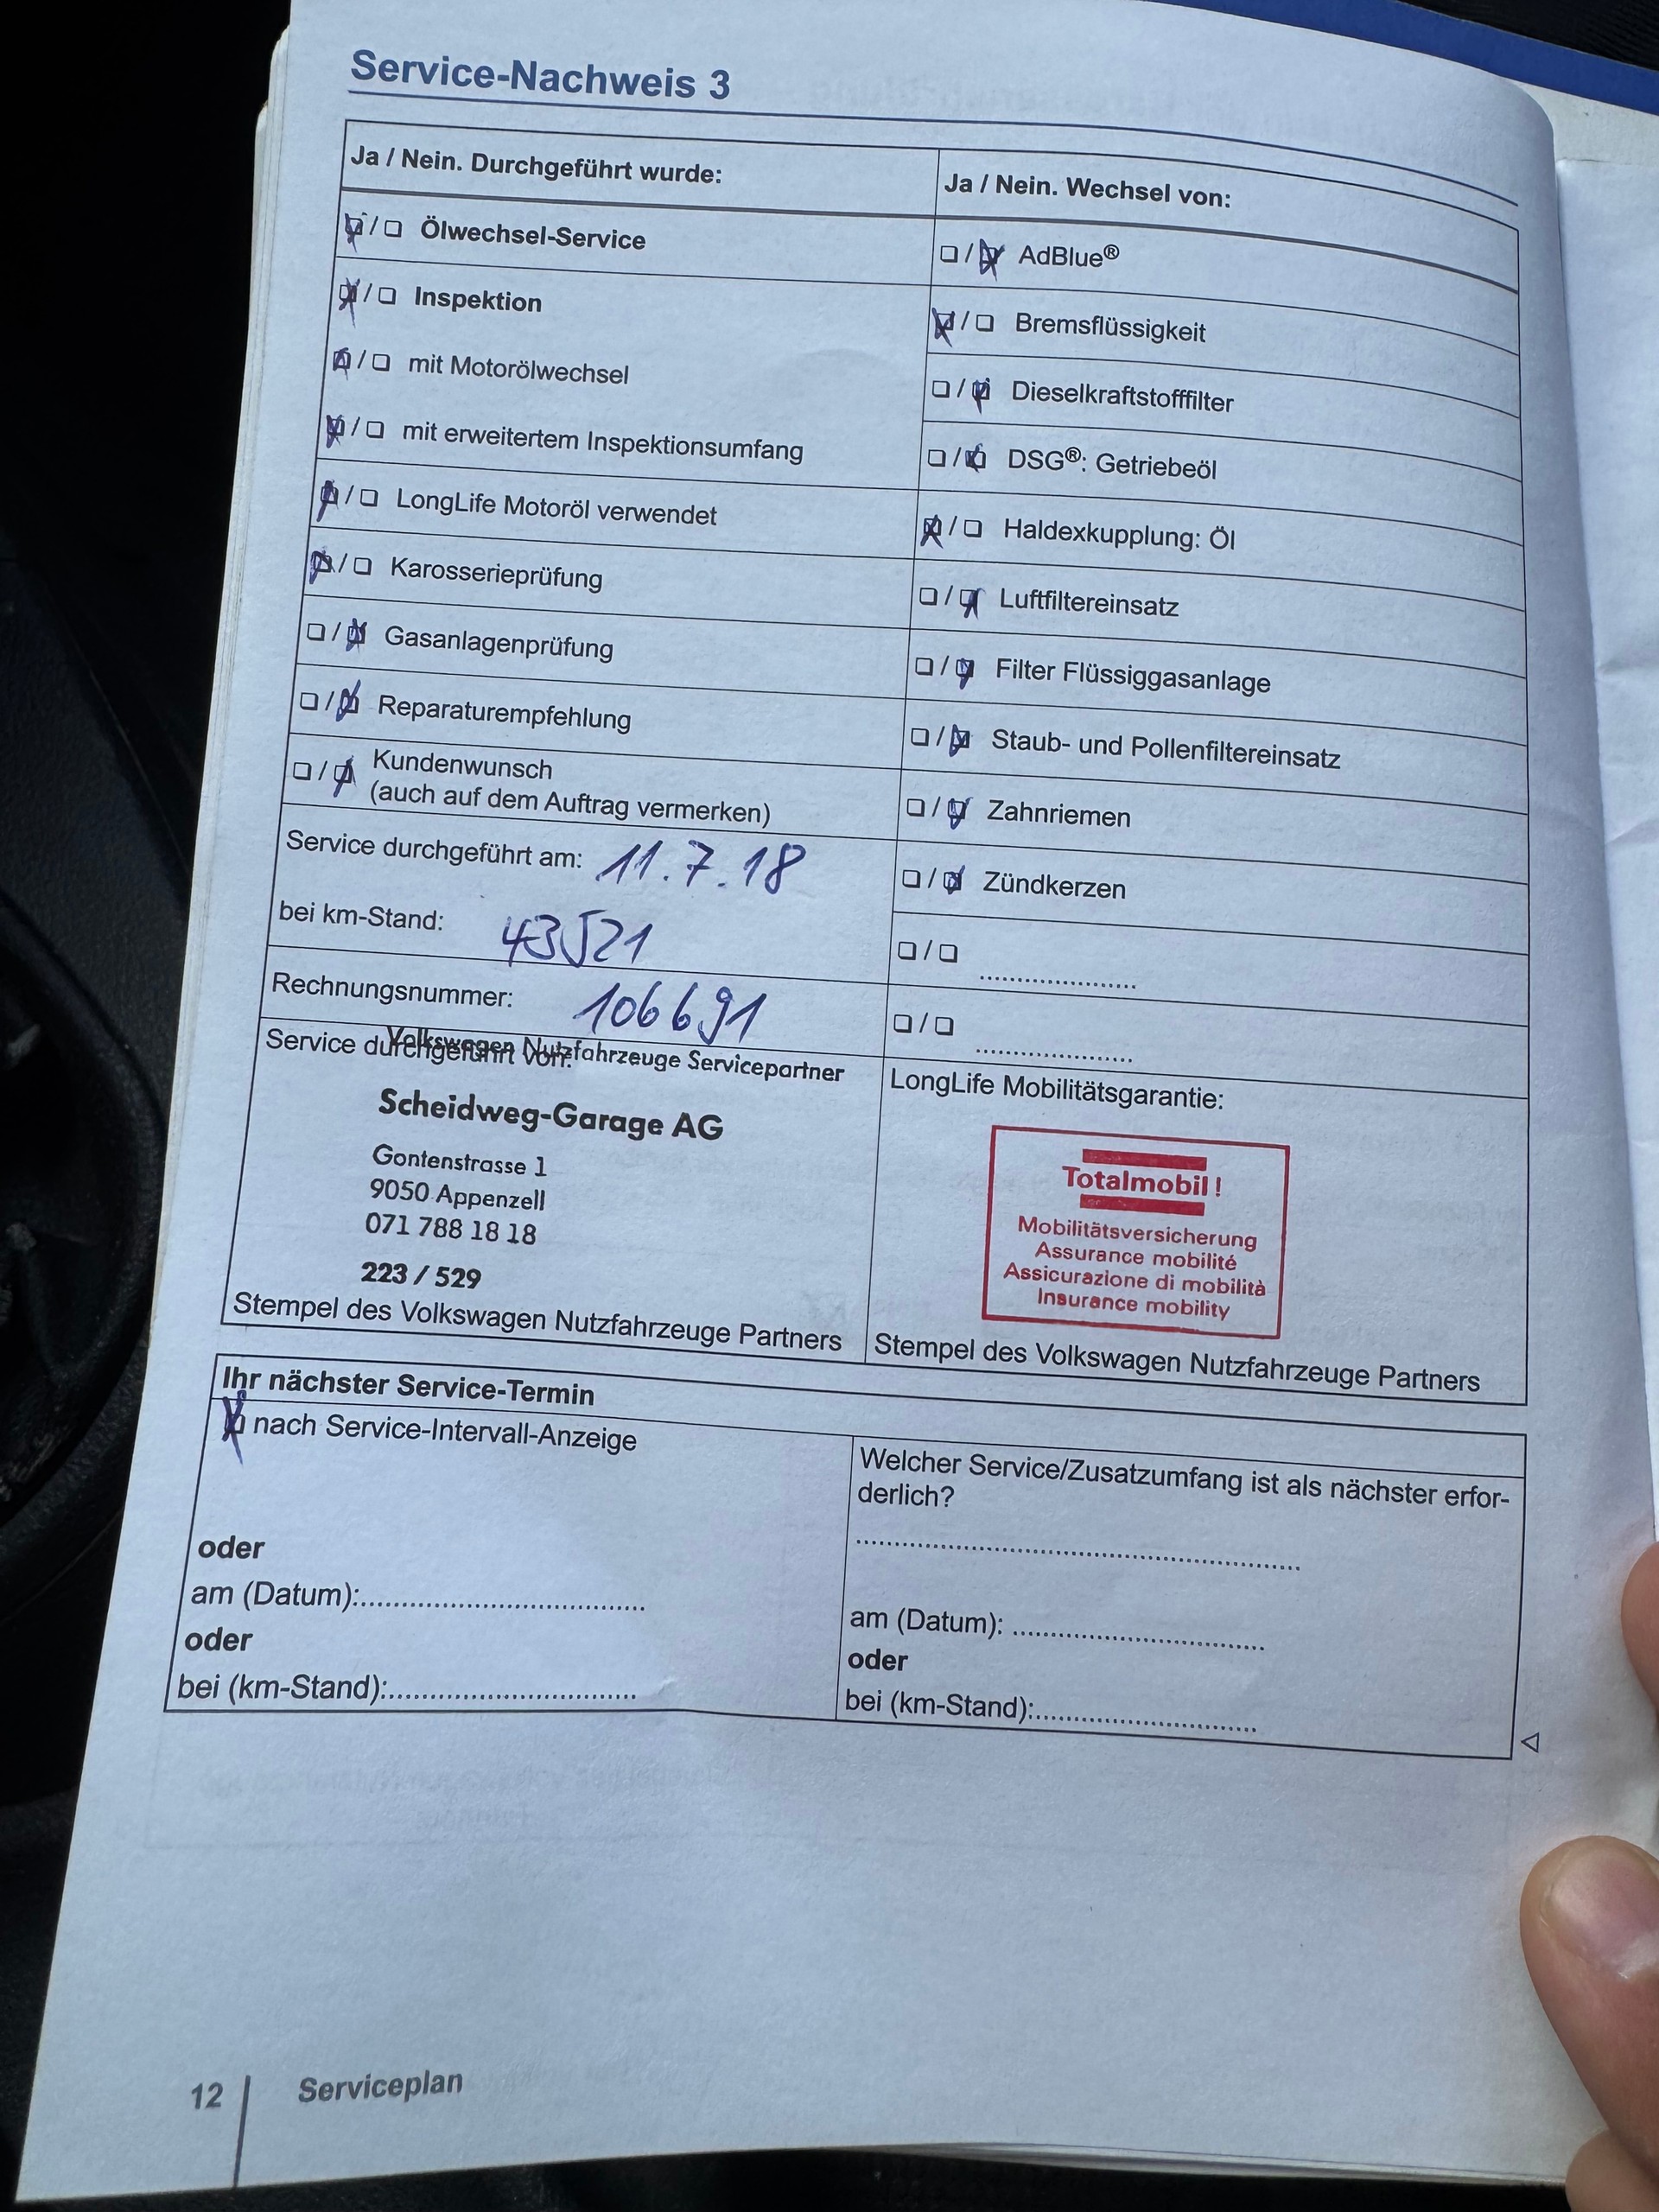 Service-Nachweis 3
Ja / Nein. Durchgeführt wurde:
☒ / ☐ Ölwechsel-Service
☒ / ☐ Inspektion
☒ / ☐ mit Motorölwechsel
☒ / ☐ mit erweitertem Inspektionsumfang
☒ / ☐ LongLife Motoröl verwendet
☒ / ☐ Karosserieprüfung
☐ / ☒ Gasanlagenprüfung
☐ / ☒ Reparaturempfehlung
☐ / ☒ Kundenwunsch
(auch auf dem Auftrag vermerken)
Service durchgeführt am: 11.7.18
bei km-Stand: 43521
Rechnungsnummer: 106691
Service durchgeführt von:
Volkswagen Nutzfahrzeuge Servicepartner
Scheidweg-Garage AG
Gontenstrasse 1
9050 Appenzell
071 788 18 18
223 / 529
Stempel des Volkswagen Nutzfahrzeuge Partners
Ja / Nein. Wechsel von:
☐ / ☒ AdBlue®
☒ / ☐ Bremsflüssigkeit
☐ / ☒ Dieselkraftstofffilter
☐ / ☒ DSG®: Getriebeöl
☒ / ☐ Haldexkupplung: Öl
☐ / ☒ Luftfiltereinsatz
☐ / ☒ Filter Flüssiggasanlage
☐ / ☒ Staub- und Pollenfiltereinsatz
☐ / ☒ Zahnriemen
☐ / ☒ Zündkerzen
☐ / ☐ ......................
☐ / ☐ ......................
LongLife Mobilitätsgarantie:
Totalmobil!
Mobilitätsversicherung
Assurance mobilité
Assicurazione di mobilità
Insurance mobility
Stempel des Volkswagen Nutzfahrzeuge Partners
Ihr nächster Service-Termin
☒ nach Service-Intervall-Anzeige
oder
am (Datum):........................................
oder
bei (km-Stand):...................................
Welcher Service/Zusatzumfang ist als nächster erfor-
derlich?
..............................................................
am (Datum): ...................................
oder
bei (km-Stand):...............................
12 Serviceplan